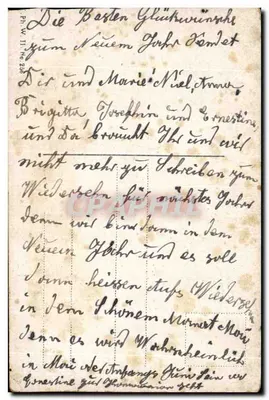 Die Besten Glückwünsche
zum Neuem Jahr Sendet
Dir und Marie Niel, Anna
Brigitta, Josephin und Ernestine
und Da braucht Ihr und wir
nicht mehr zu Schreiben zum
Wiedersehn für nächstes Jahr
denn wir sind dann in dem
Neuem Jahr und es soll
dann heissen Aufs Wiedersehn
in dem Schönem Monat Mai
denn es wird Wahrscheinlich
in Mai der Anfangs
Ernestine zur Kommunion geht